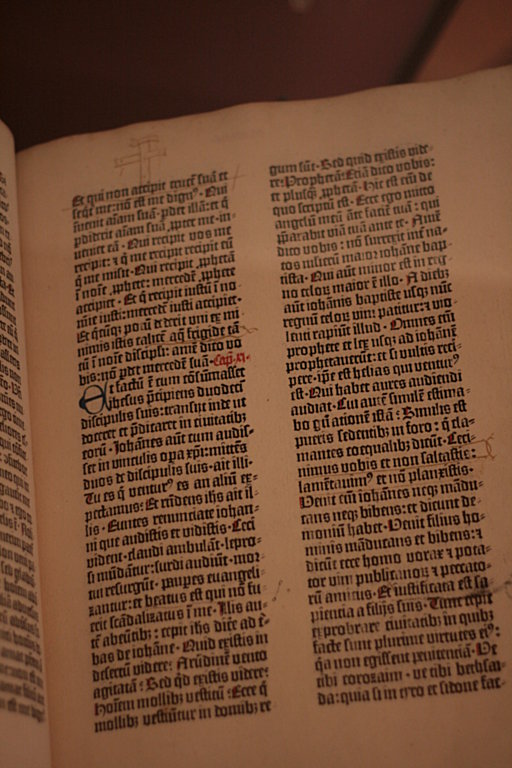 Et qui non accipit crucē suā et
seq̄t̄ me: nō est me dign⁹. Qui
inuenit aīam suā ꝑdet illā: et q̄
ꝑdiderit aīam suā ꝓpter me in-
ueniet eā. Qui recipit vos me
recipit: et q̄ me recipit recipit eū
q̄ me misit. Qui recipit ꝓphetā
ī noīe ꝓphete: mercedē ꝓphete
accipiet. Et q̄ recipit iustū ī no-
mine iusti: mercedē iusti accipiet.
Et q̄cūq; potū dederit vni ex mi-
nimis istis calicē aq̄ frigide tā-
tū ī noīe discipli: amē dico vo-
bis: nō ꝑdet mercedē suā. Cap. xi.
Et factū ē cum cōsūmasset
ihesus p̄cipiens duodecī
discipulis suis: transijt inde vt
doceret et p̄dicaret in ciuitatib;
eorū. Johānes aūt cum audis-
set in vinculis opa xp̄i: mittēs
duos de discipulis suis. ait illi.
Tu es q̄ ventur⁹ es an aliū ex-
pectamus: Et rn̄dens ihs ait il-
lis. Euntes renunciate iohan-
ni que audistis et vidistis. Ceci
vident. claudi ambulāt. lepro-
si mūdātur: surdi audiūt. mor-
tui resurgūt. pauꝑes euangeli-
zantur: et beatus est qui nō fu-
erit scādalizatus ī me. Illis au-
tē abeūtib;: cepit ihs dice ad t̄-
bas de iohāne. Quid existis in
desertū videre: Arūdinē vento
agitatā: Sed qd existis videre:
hoīem mollib; vestitū: Ecce q̄
mollib; vestiūtur in domib; re-
gum sūt. Sed quid existis vide-
re: Prophetā: Etiā dico vobis:
et plusq̄ ꝓphetā. Hic est em̄ de
quo scriptū est. Ecce ego mitto
angelū meū āte faciē tuā: qui
p̄parabit viā tuā ante te. Amē
dico vobis: nō surrexit int̄ na-
tos mulierū maior iohāne bap-
tista. Qui aūt minor est in reg-
no celor̄ maior ē illo. A dieb;
aūt iohānis baptiste vsq; nūc
regnū celor̄ vim patitur: et vio-
lenti rapiunt illud. Omnes em̄
prophete et lex vsq; ad iohānē
prophetauerūt: et si vultis reci-
pere. ip̄e est helias qui ventur⁹
est. Qui habet aures audiendi
audiat. Cui autē similē estima-
bo gn̄ationē istā: Similis est
pueris sedentib; in foro: q̄ cla-
mantes coequalib; dicūt. Ceci-
nimus vobis et non saltastis:
lamētauim⁹ et nō planxistis.
Venit em̄ iohānes neq; mādu-
cans neq; bibens: et dicunt de-
moniū habet. Venit filius ho-
minis māducans et bibens: et
dicūt ecce homo vorax et pota-
tor vini publicanor̄ et peccato-
rū amicus. Et iustificata est sa-
piencia a filijs suis. Tunc cepit
exprobrare ciuitatib; in quib;
facte sunt plurime virtutes ei⁹:
q̄a non egissent penitentiā. Ve
tibi corozaim. ve tibi bethsai-
da: quia si in tyro et sidone fac-